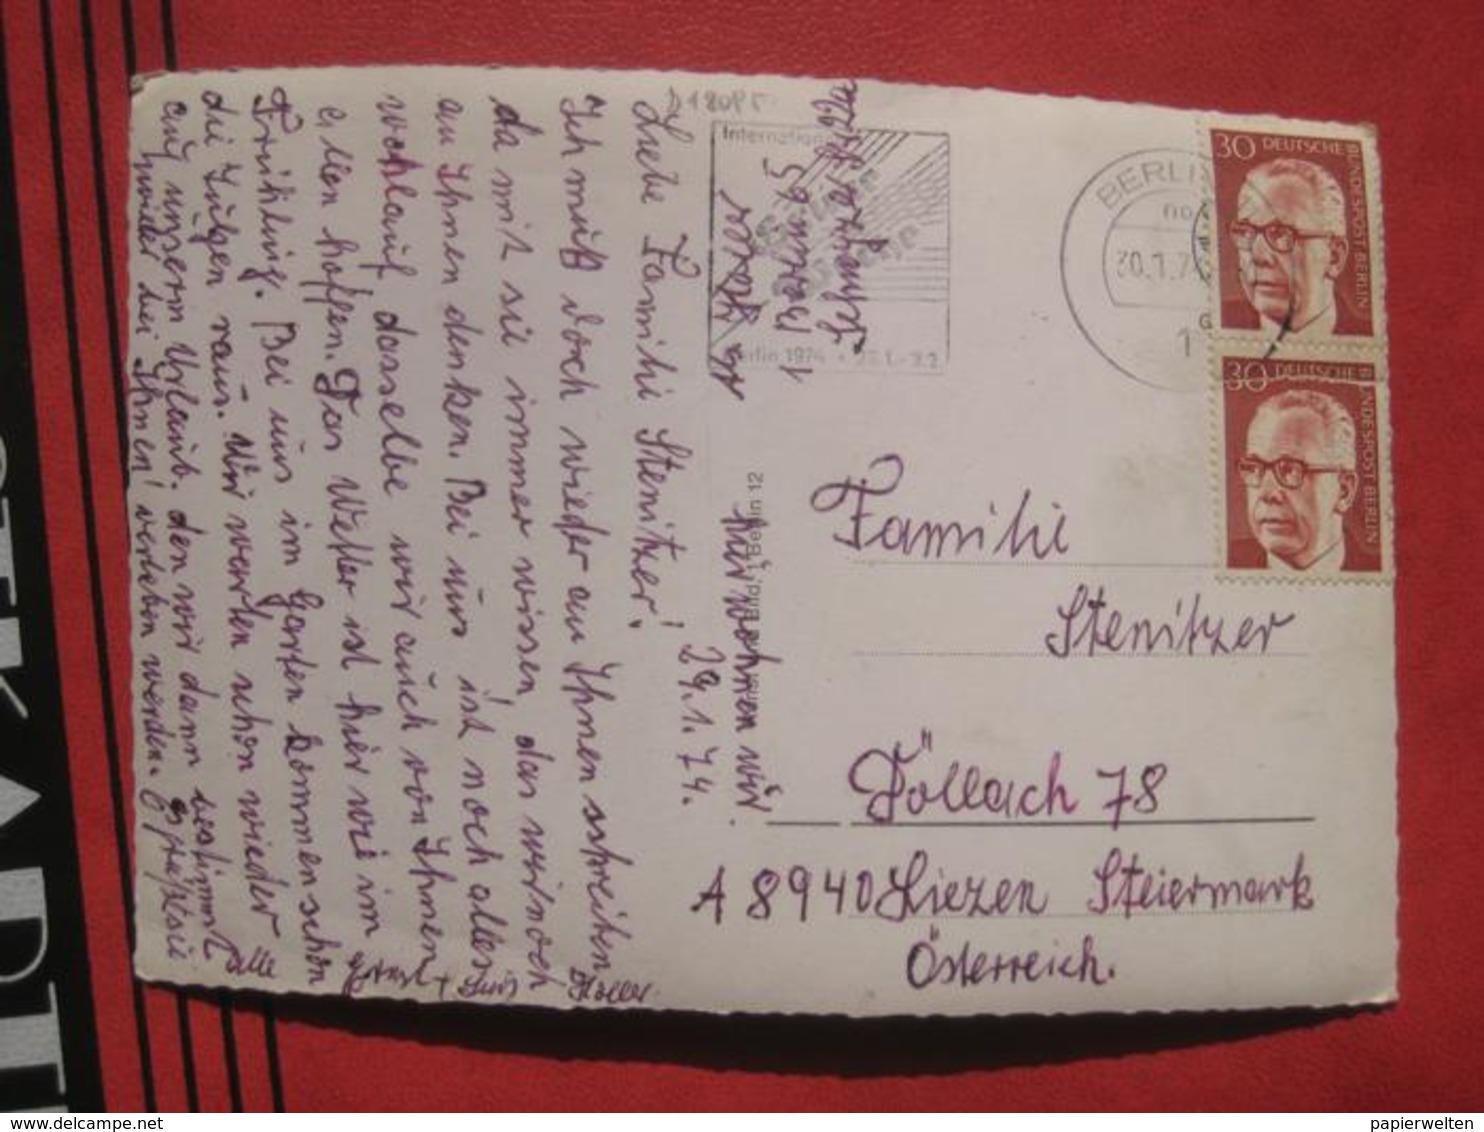 29.1.74.
Liebe Familie Stenitzer!
Ich muß doch wieder an Ihnen schreiben
da mit sie immer wissen, das wir noch
an Ihnen denken. Bei uns ist noch alles
wohlauf dasselbe wir auch von Ihnen
hoffen. Das Wetter ist hier wie im
Frühling. Bei uns im Garten kommen schon
die raus. Wir warten schon wieder
auf unsern Urlaub. den wir dann bestimmt
wieder bei Ihnen! verleben werden. Es grüßt Sie
alle
Ernst +
Höller
Internationale
Berlin 1974
1 Berlin 65
Hier wohnen wir.
Berlin 12
BERLIN
30.1.74
1
30 DEUTSCHE BUNDESPOST BERLIN
30 DEUTSCHE BUNDESPOST BERLIN
Familie
Stenitzer
Döllach 78
A 8940 Liezen Steiermark
Österreich.
www.delcampe.net
papierwelten